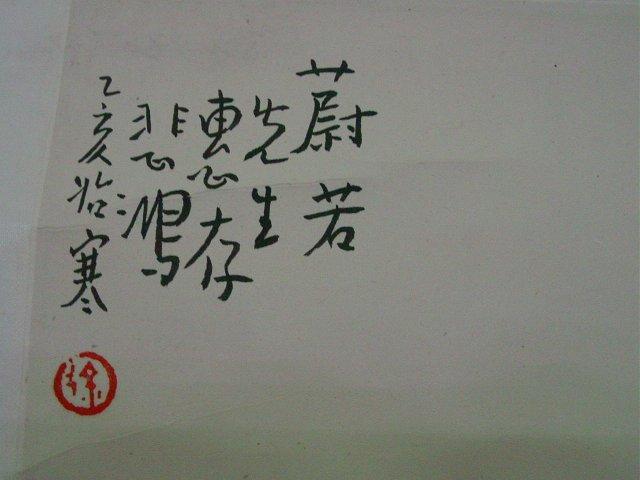 蔚若
先生
惠存
悲鴻
乙亥始寒